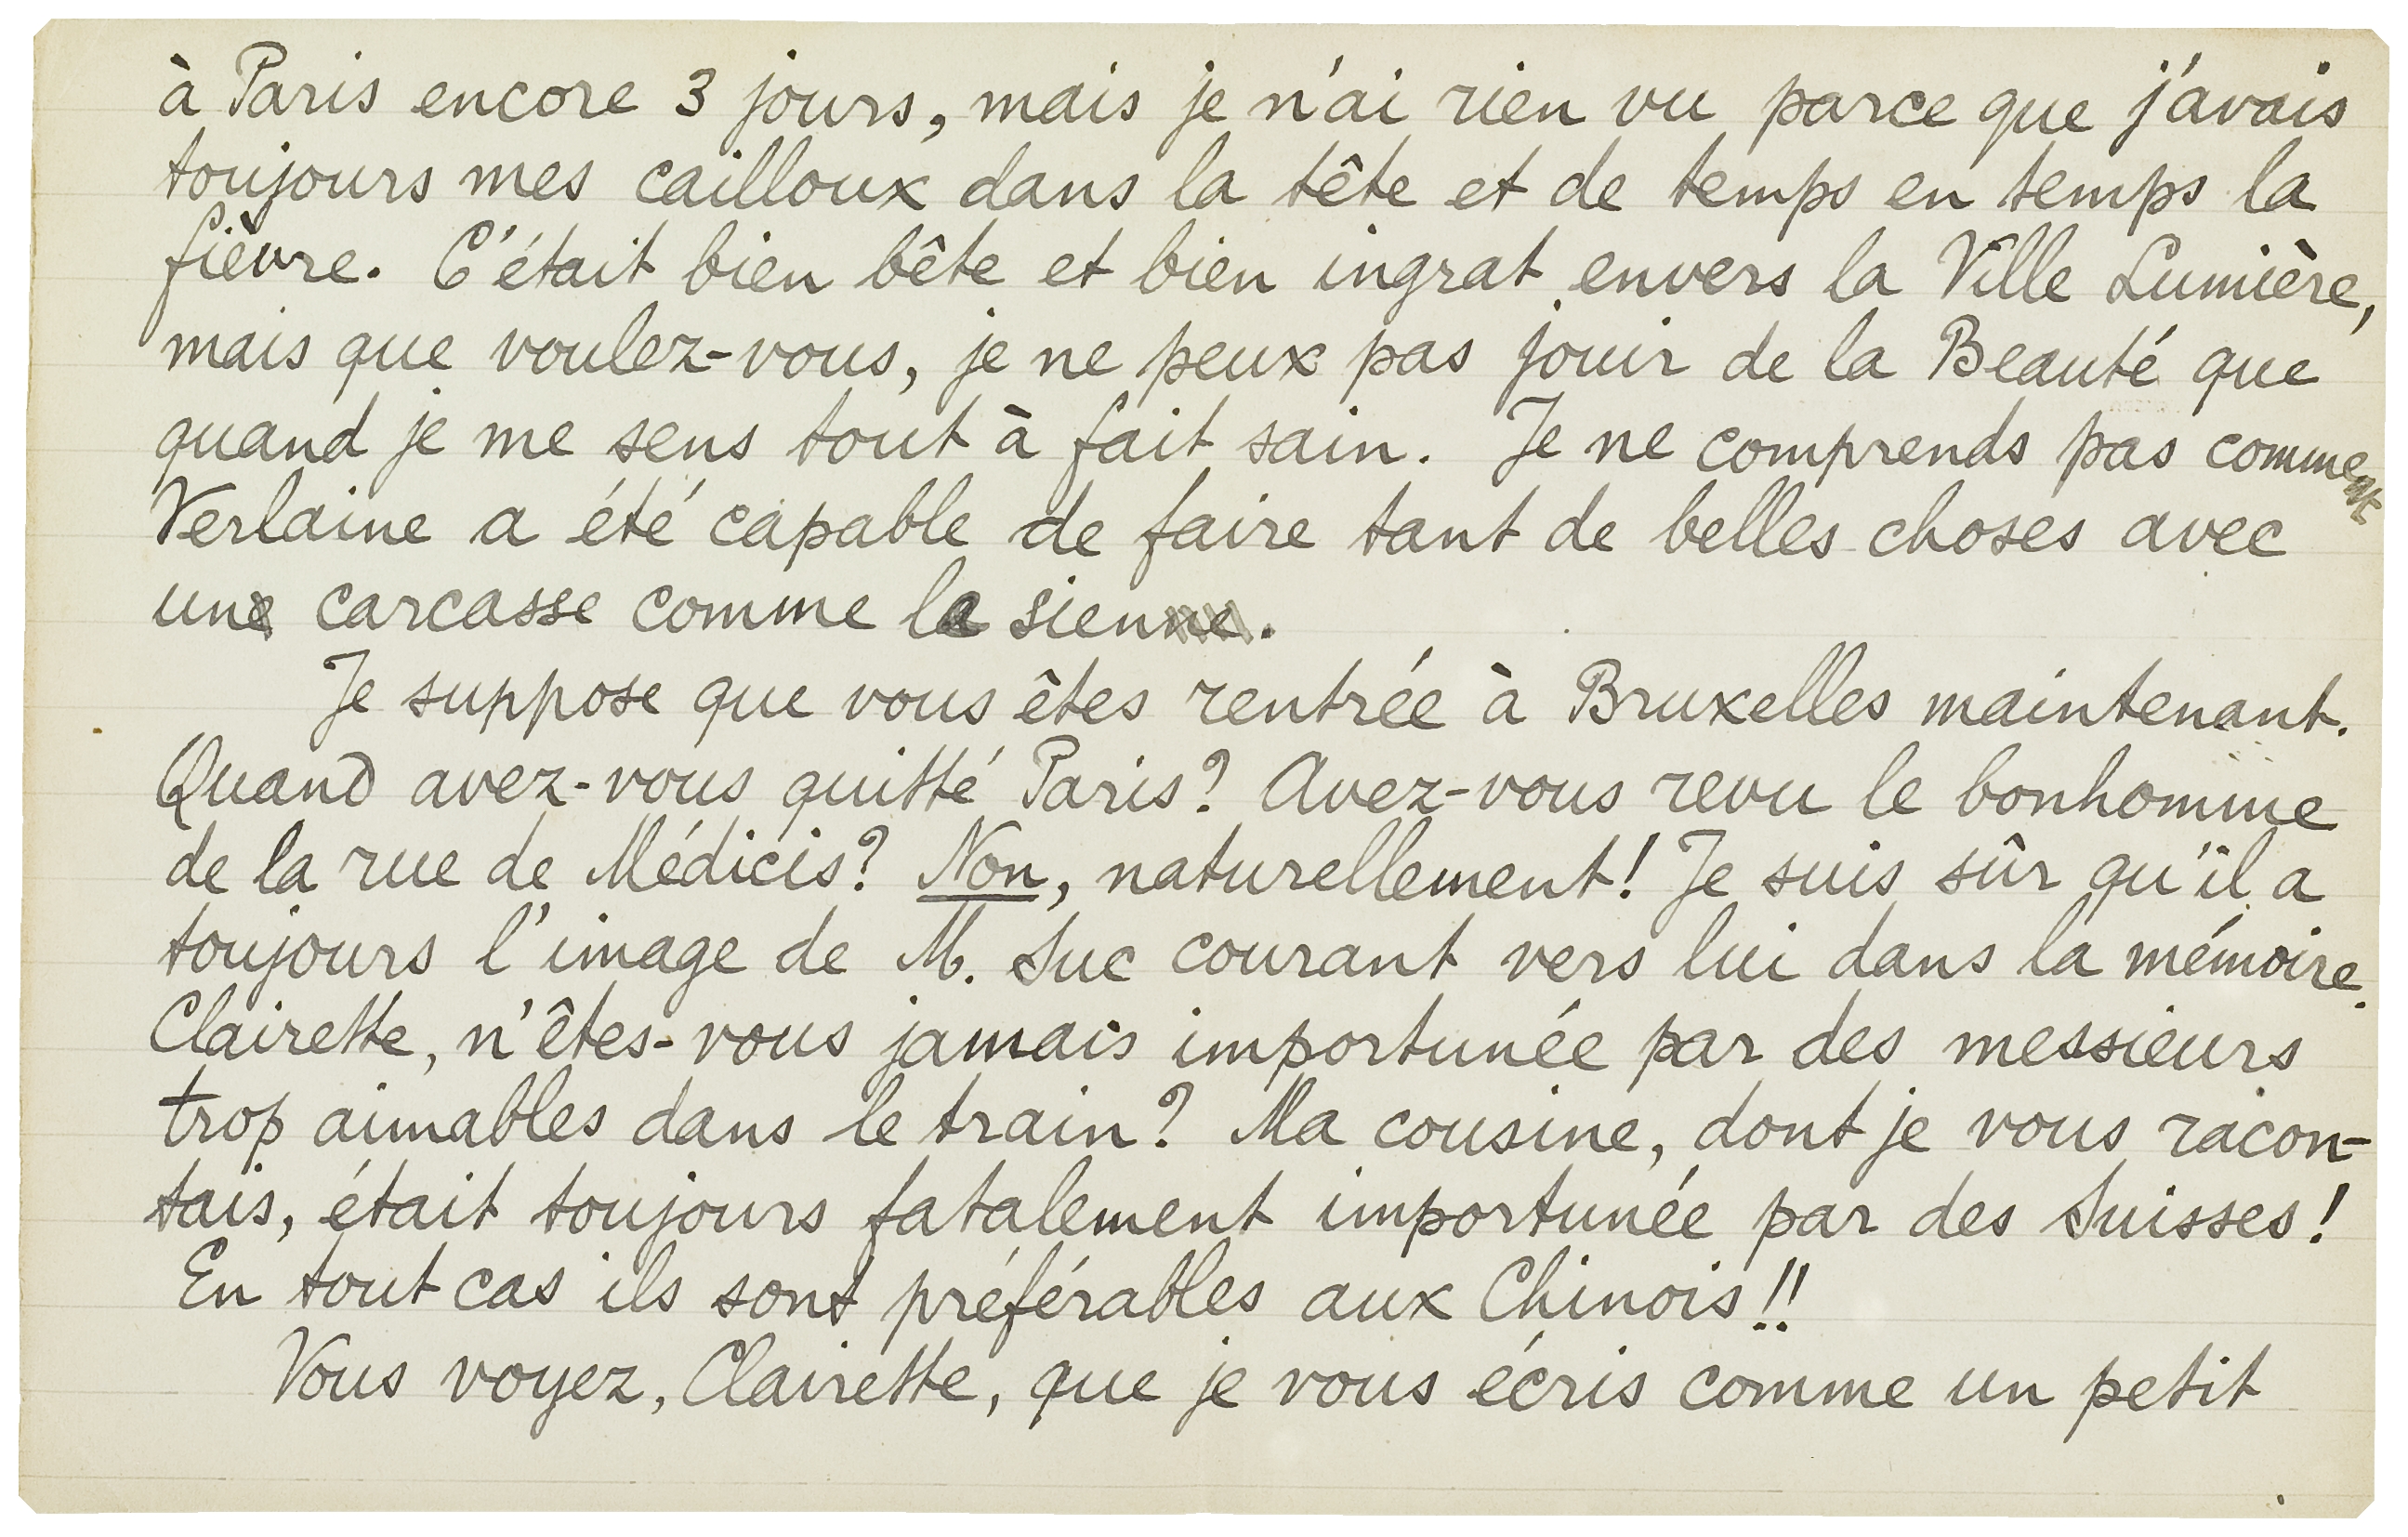 à Paris encore 3 jours, mais je n'ai rien vu parce que j'avais
toujours mes cailloux dans la tête et de temps en temps la
fièvre. C'était bien bête et bien ingrat envers la Ville Lumière,
mais que voulez-vous, je ne peux pas jouir de la Beauté que
quand je me sens tout à fait sain. Je ne comprends pas comment
Verlaine a été capable de faire tant de belles choses avec
une carcasse comme la sienne.
Je suppose que vous êtes rentrée à Bruxelles maintenant.
Quand avez-vous quitté Paris? Avez-vous revu le bonhomme
de la rue de Médicis? Non, naturellement! Je suis sûr qu'il a
toujours l'image de M. Suc courant vers lui dans la mémoire.
Clairette, n'êtes-vous jamais importunée par des messieurs
trop aimables dans le train? Ma cousine, dont je vous racon-
tais, était toujours fatalement importunée par des Suisses!
En tout cas ils sont préférables aux Chinois!!
Vous voyez, Clairette, que je vous écris comme un petit